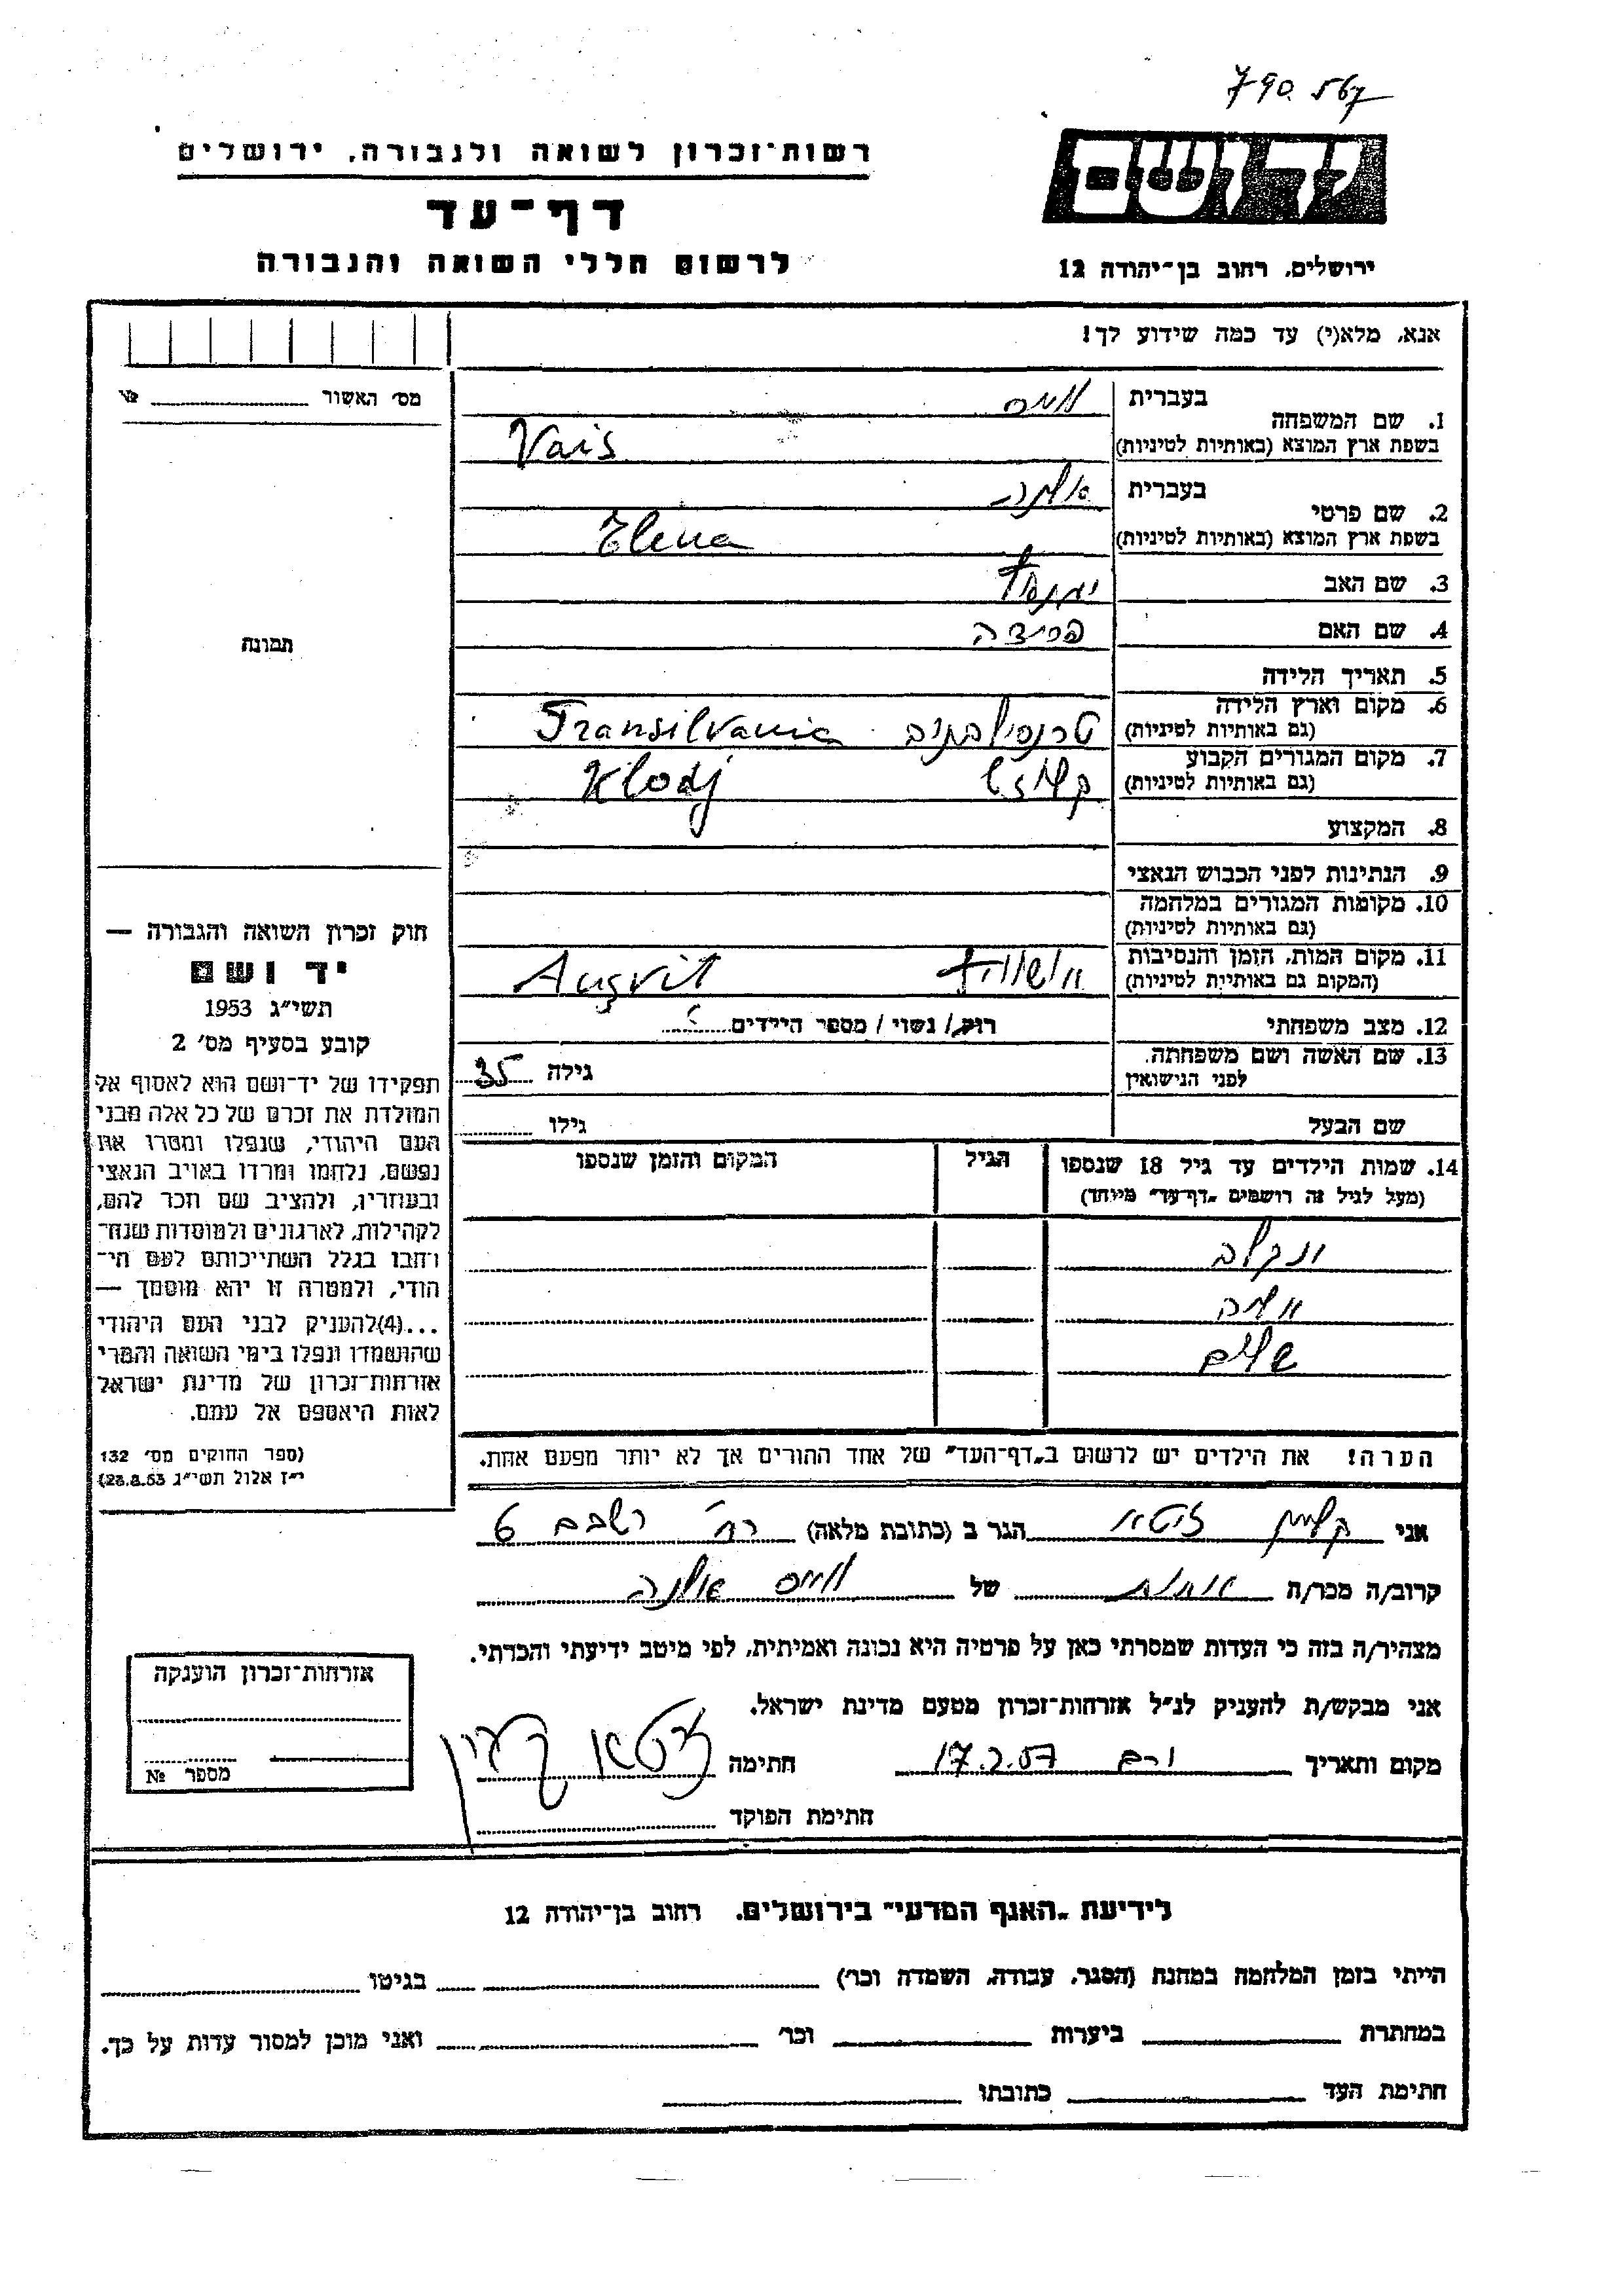 790.567
רשות־זכרון לשואה ולגבורה, ירושלים
דף־עד
לרשום חללי השואה והגבורה
ידושם
ירושלים, רחוב בן־יהודה 12
אנא, מלא(י) עד כמה שידוע לך!
מס׳ האשור № 
1. שם המשפחה
בעברית
בשפת ארץ המוצא (באותיות לטיניות) Vais
2. שם פרטי
בעברית
בשפת ארץ המוצא (באותיות לטיניות) Elena
3. שם האב
4. שם האם
5. תאריך הלידה
6. מקום וארץ הלידה
(גם באותיות לטיניות) טרנסילבניה Transilvania
7. מקום המגורים הקבוע
(גם באותיות לטיניות) Klodj
8. המקצוע
9. הנתינות לפני הכבוש הנאצי
10. מקומות המגורים במלחמה
(גם באותיות לטיניות)
11. מקום המות, הזמן והנסיבות
(המקום גם באותיות לטיניות) Auşvit
12. מצב משפחתי רוק/ נשוי / מספר הילדים
13. שם האשה ושם משפחתה
לפני הנישואין גילה 35
שם הבעל גילו
14. שמות הילדים עד גיל 18 שנספו הגיל המקום והזמן שנספו
(מעל לגיל זה רושמים „דף־עד״ מיוחד)
הערה! את הילדים יש לרשום ב„דף־העד״ של אחד ההורים אך לא יותר מפעם אחת.
תמונה
חוק זכרון השואה והגבורה —
יד ושם
תשי״ג 1953
קובע בסעיף מס׳ 2
תפקידו של יד־ושם הוא לאסוף אל
המולדת את זכרם של כל אלה מבני
העם היהודי, שנפלו ומסרו את
נפשם, נלחמו ומרדו באויב הנאצי
ובעוזריו, ולהציב שם וזכר להם,
לקהילות, לארגונים ולמוסדות שנח־
רבו בגלל השתייכותם לעם הי־
הודי, ולמטרה זו יהא מוסמך —
...(4)להעניק לבני העם היהודי
שהושמדו ונפלו בימי השואה והמרי
אזרחות־זכרון של מדינת ישראל
לאות היאספם אל עמם.
(ספר החוקים מס׳ 132
י״ז אלול תשי״ג 28.8.53)
אני הגר ב (כתובת מלאה) 6
קרוב/ה מכר/ה של וייס אלנה
מצהיר/ה בזה כי העדות שמסרתי כאן על פרטיה היא נכונה ואמיתית, לפי מיטב ידיעתי והכרתי.
אני מבקש/ת להעניק לנ״ל אזרחות־זכרון מטעם מדינת ישראל.
מקום ותאריך 17.2.57 חתימה
חתימת הפוקד
אזרחות־זכרון הוענקה
מספר №
לידיעת „האגף המדעי״ בירושלים, רחוב בן־יהודה 12
הייתי בזמן המלחמה במחנה (הסגר, עבודה, השמדה וכר׳) בגיטו
במחתרת ביערות וכר׳ ואני מוכן למסור עדות על כך.
חתימת העד כתובתו